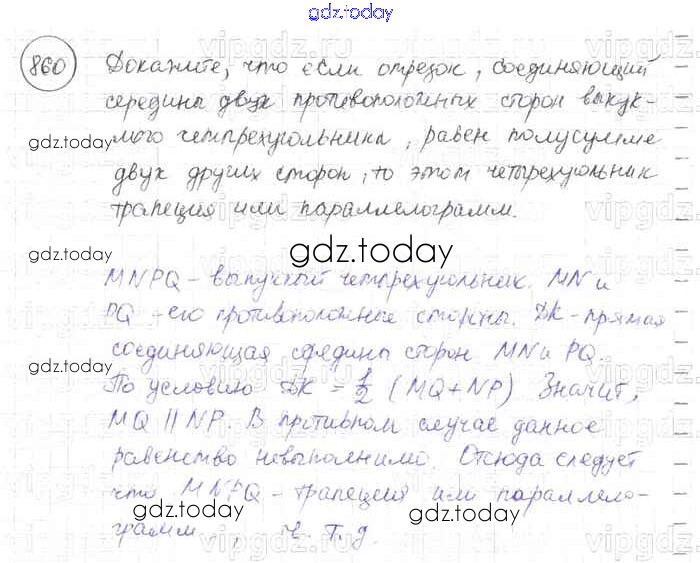 gdz.today
860
Докажите, что если отрезок, соединяющий
середины двух противоположных сторон выпук-
лого четырехугольника, равен полусумме
двух других сторон, то этот четырехугольник
трапеция или параллелограмм.
MNPQ - выпуклый четырехугольник. MN и
PQ - его противоположные стороны. DK - прямая
соединяющая середины сторон MN и PQ.
По условию DK = 1/2 (MQ+NP) Значит,
MQ || NP. В противном случае данное
равенство невыполнимо. Отсюда следует
что MNPQ - трапеция или параллело-
грамм, ч.т.д.
gdz.today
gdz.today
gdz.today
gdz.today
gdz.today
gdz.today
gdz.today